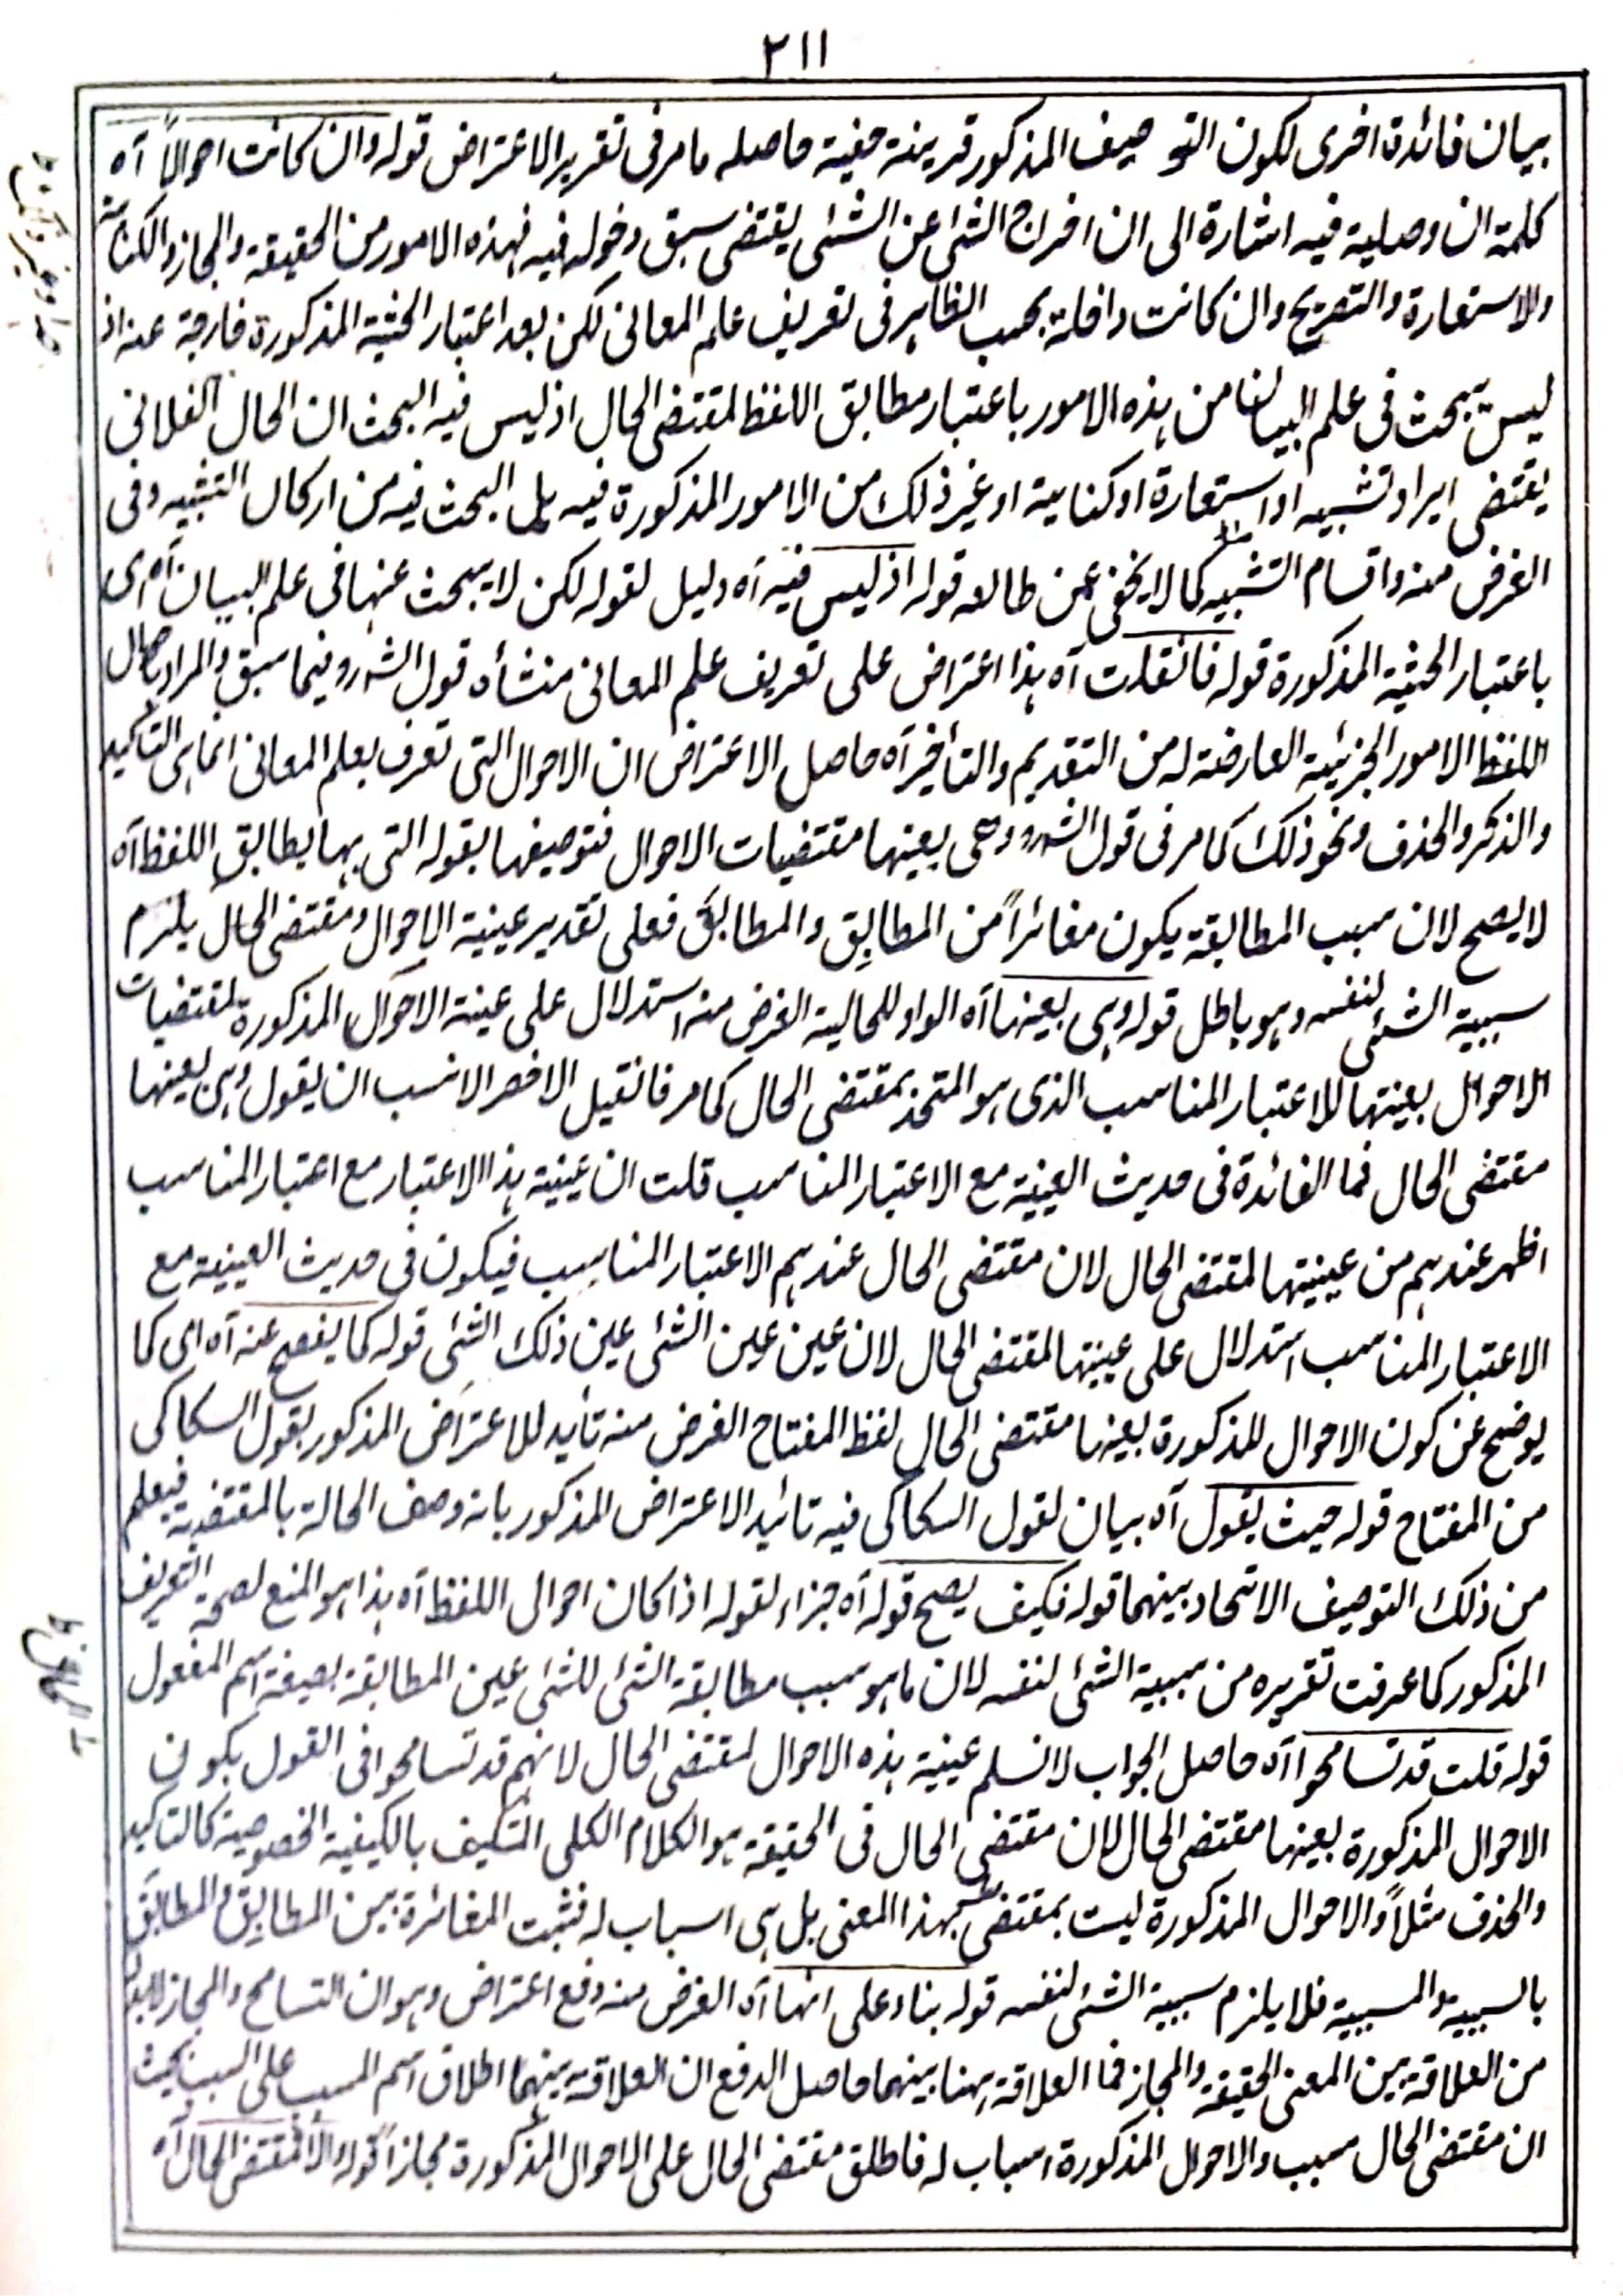 ٢١١
بيان فائدة اخرى لكون التوصيف المذكور قرينة خفية حاصله ما مر فى تقرير الاعتراض قوله وان كانت احوالاً آه
كلمة ان وصلية فيه اشارة الى ان اخراج الشئ عن الشئ يقتضى سبق دخوله فيه فهذه الامور من الحقيقة والمجاز والكناية
والاستعارة والتصريح وان كانت داخلة بحسب الظاهر فى تعريف علم المعانى لكن بعد اعتبار الحيثية المذكورة خارجة عنه اذ
ليس يبحث فى علم البيان من هذه الامور باعتبار مطابق اللفظ لمقتضى الحال اذ ليس فيه البحث ان الحال الفلانى
يقتضى ايراد تشبيه او استعارة او كناية او غير ذلك من الامور المذكورة فيه بل البحث فيه من اركان التشبيه وفى
الغرض منه واقسام التشبيه كما لا يخفى عمن طالعه قوله اذ ليس فيه آه دليل لقوله لكن لا يبحث عنها فى علم البيان آه اى
باعتبار الحيثية المذكورة قوله فان قلت آه هذا اعتراض على تعريف علم المعانى منشأه قول الشرو فيما سبق والمراد باحوال
اللفظ الامور الجزئية العارضة له من التقديم والتأخير آه حاصل الاعتراض ان الاحوال التى تعرف بعلم المعانى انما هى التاكيد
والذكر والحذف ونحو ذلك كما مر فى قول الشرو وهى بعينها مقتضيات الاحوال فتوصيفها بقوله التى بها يطابق اللفظ آه
لا يصح لان سبب المطابقة يكون مغائراً من المطابِق والمطابَق فعلى تقدير عينية الاحوال ومقتضى الحال يلزم
سببية الشئى لنفسه وهو باطل قوله وهى بعينها آه الواو للحالية الغرض منه استدلال على عينة الاحوال المذكورة لمقتضيات
الاحوال بعينتها للاعتبار المناسب الذى هو المتحد بمقتضى الحال كما مر فان قيل الاخصر الانسب ان يقول وهى بعينها
مقتضى الحال فما الفائدة فى حديث العينية مع الاعتبار المناسب قلت ان عينية هذا الاعتبار مع اعتبار المناسب
اظهر عندهم من عينيتها لمقتضى الحال لان مقتضى الحال عندهم الاعتبار المناسب فيكون فى حديث العينية مع
الاعتبار المناسب استدلال على عينيتها لمقتضى الحال لان عين عين الشئى عين ذلك الشئى قوله كما يفصح عنه آه اى كما
يوضح عن كون الاحوال المذكورة بعينها مقتضى الحال لفظ المفتاح الغرض منه تأيد للاعتراض المذكور بقول السكاكى
من المفتاح قوله حيث يقول آه بيان لقول السكاكى فيه تائيد الاعتراض المذكور بانه وصف الحالة بالمقتضية فيعلم
من ذلك التوصيف الاتحاد بينهما قوله فكيف يصح قوله آه جزاء لقوله اذا كان احوال اللفظ آه هذا هو المنع لصحة التعريف
المذكور كما عرفت تقريره من سببية الشئى لنفسه لان ما هو سبب مطابقة الشئى للشئى عين المطابقة بصيغة اسم المفعول
قوله قلت قد تسامحوا آه حاصل الجواب لا نسلم عينية هذه الاحوال لمقتضى الحال لانهم قد تسامحوا فى القول بكون
الاحوال المذكورة بعينها مقتضى الحال لان مقتضى الحال فى الحقيقة هو الكلام الكلى المتكيف بالكيفية الخصوصية كالتاكيد
والحذف مثلاً والاحوال المذكورة ليست بمقتضى بهذا المعنى بل هى اسباب له فثبت المغائرة بين المطابِق والمطابَق
بالسببية والمسببية فلا يلزم سببية الشئى لنفسه قوله بناء على انها آه الغرض منه دفع اعتراض وهو ان التسامح والمجاز لابد
من العلاقة بين المعنى الحقيقة والمجاز فما العلاقة ههنا بينهما حاصل الدفع ان العلاقة بينهما اطلاق اسم المسبب على السبب بحيث
ان مقتضى الحال سبب والاحوال المذكورة اسباب له فاطلق مقتضى الحال على الاحوال المذكورة مجازاً قوله والا فمقتضى الحال آه